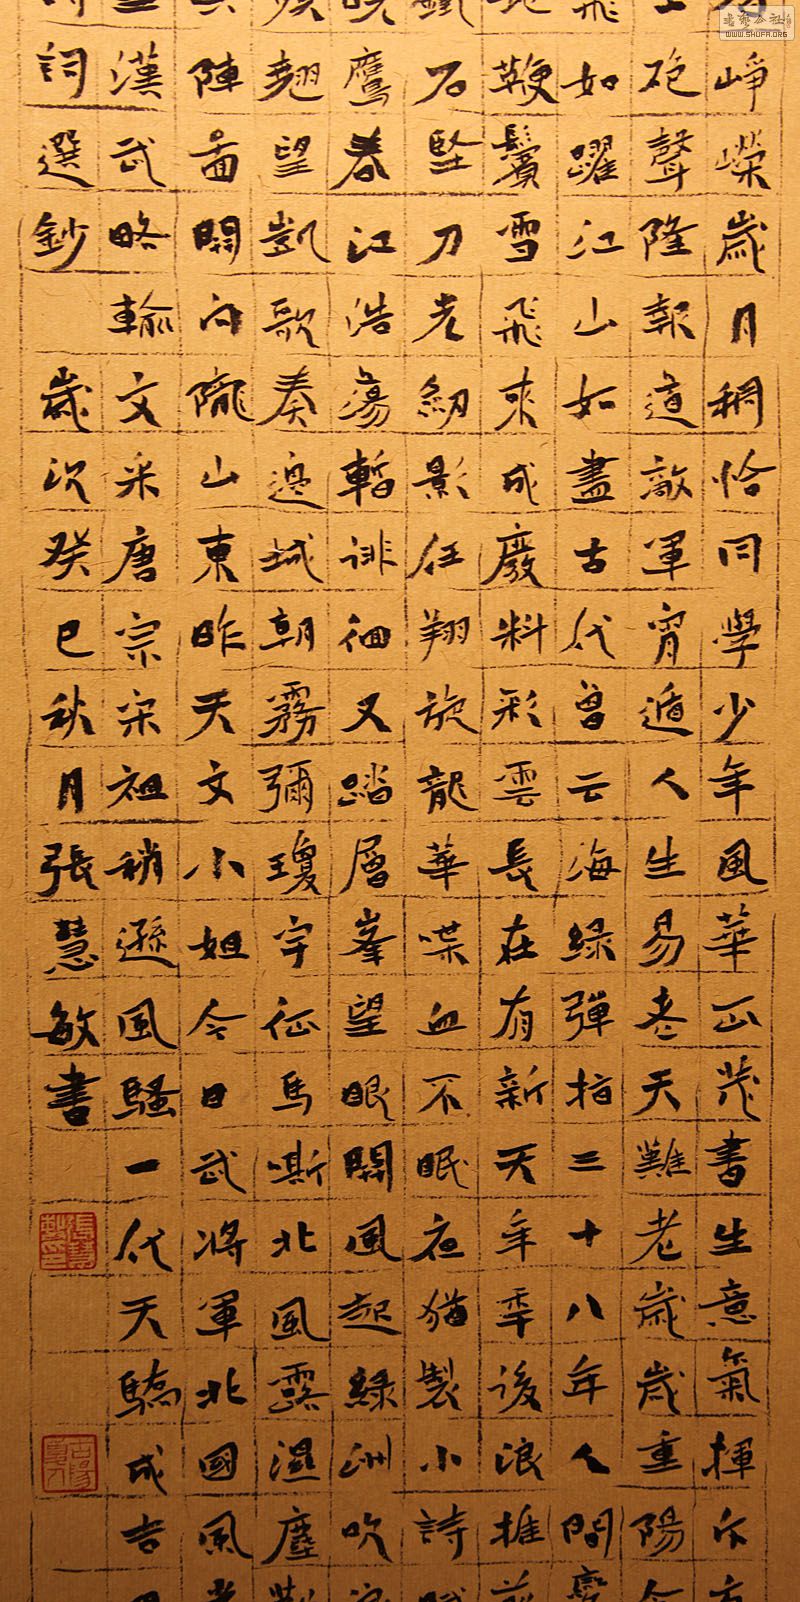 崢嶸歲月稠恰同學少年風華正茂書生意氣揮斥方
砲聲隆報道敵軍宵遁人生易老天難老歲歲重陽今
如躍江山如畫古代曾云海綠彈指三十八年人間變
鞭鬢雪飛來成廢料彩雲長在有新天年年後浪推前
石堅刀光劍影任翔旋龍華喋血不眠夜猶製小詩賦
鷹春江浩蕩暫徘徊又踏層峯望眼開風起綠洲吹浪
翹望凱歌奏邊城朝霧彌瓊宇征馬嘶北風露濕塵
陣圖開向隴山東昨天文小姐今日武將軍北國風光
漢武略輸文采唐宗宋祖稍遜風騷一代天驕成吉思
詞選鈔 歲次癸巳秋月張慧敏書
WWW.SHUFA.ORG